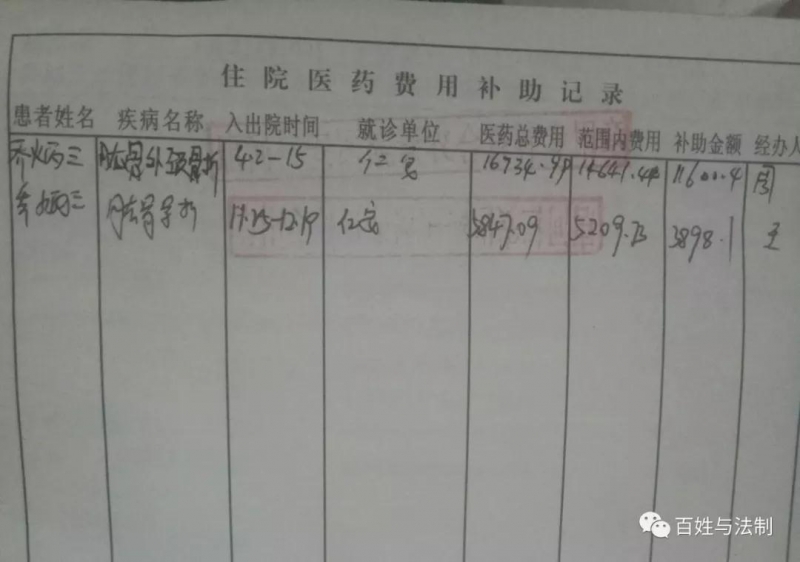 住院医药费用补助记录
患者姓名 疾病名称 入出院时间 就诊单位 医药总费用 范围内费用 补助金额 经办人
丙三 肱骨外髁骨折 4.2-15 仁 16734.99 14641.44 11600.4 周
丙三 肱骨骨折 11.25-12.19 仁 5847.09 5209.73 3898.1 王
百姓与法制